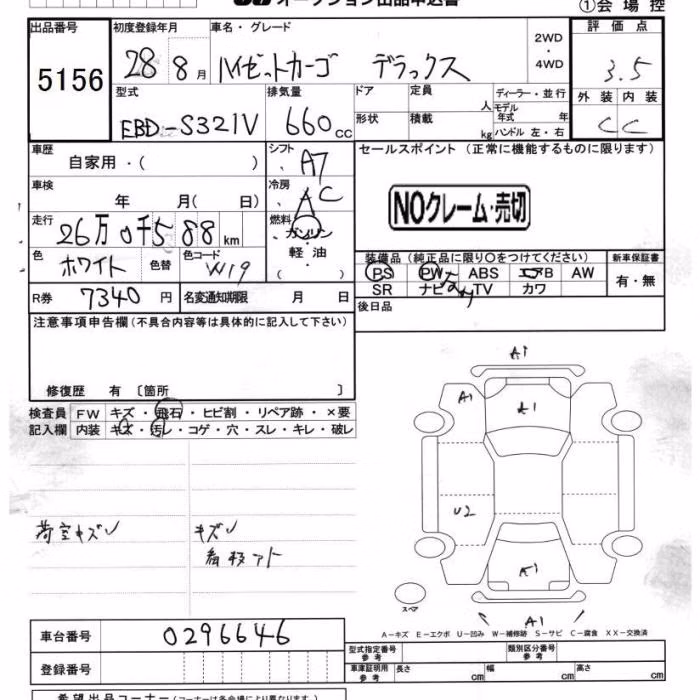 オークション出品申込書
①会場控
出品番号 初度登録年月 車名・グレード 評価点
5156 28年 8月 ハイゼットカーゴ デラックス 2WD・4WD 3.5
型式 排気量 ドア 定員 人 ディーラー・並行 外装 内装
EBD-S321V 660cc 形状 積載 kg モデル年式 年 C C
ハンドル 左・右
車歴 自家用・( ) シフト A7 セールスポイント (正常に機能するものに限ります)
車検 年 月( 日) 冷房 AC NOクレーム・売切
走行 26万0千588km 燃料 ガソリン 軽油 ( )
色 ホワイト 色替 色コード W19 装備品 (純正品に限り○をつけてください) 新車保証書
PS PW ABS エアB AW 有・無
SR ナビ TV カワ
R券 7340円 名変通知期限 月 日 後日品
注意事項申告欄 (不具合内容等は具体的に記入して下さい)
修復歴 有 〔箇所 〕
検査員 FW キズ・飛石・ヒビ割・リペア跡・×要
記入欄 内装 キズ・汚レ・コゲ・穴・スレ・キレ・破レ
A1
A1 A1
U2
荷室キズ キズ
看板アト
A1
スペア
A1
A-キズ E-エクボ U-凹み W-補修跡 S-サビ C-腐食 XX-交換済
車台番号 0296646
型式指定番号 参考 類別区分番号 参考
登録番号 車庫証明用 参考 長さ cm 幅 cm 高さ cm
希望出品コーナー (コーナーは各会場により異なります)